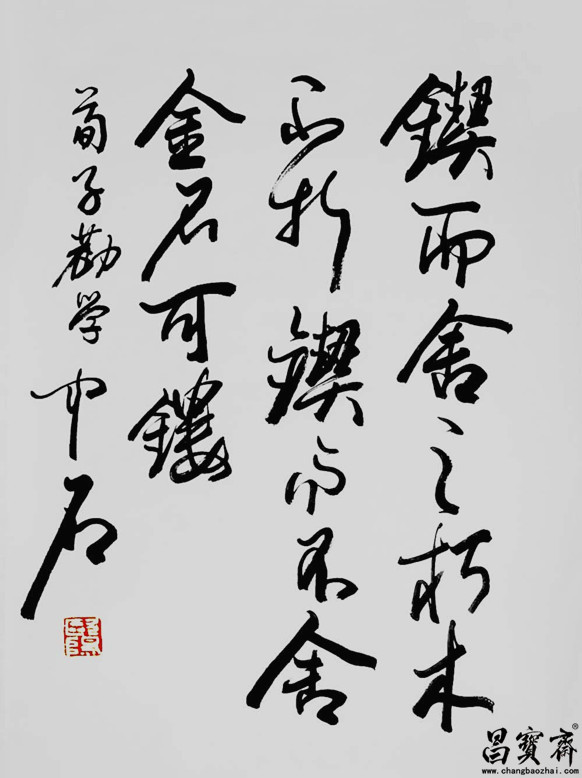 鍥而舍之朽木
不折鍥而不舍
金石可鏤
荀子勸学 中石
昌寶齋®
www.changbaozhai.com